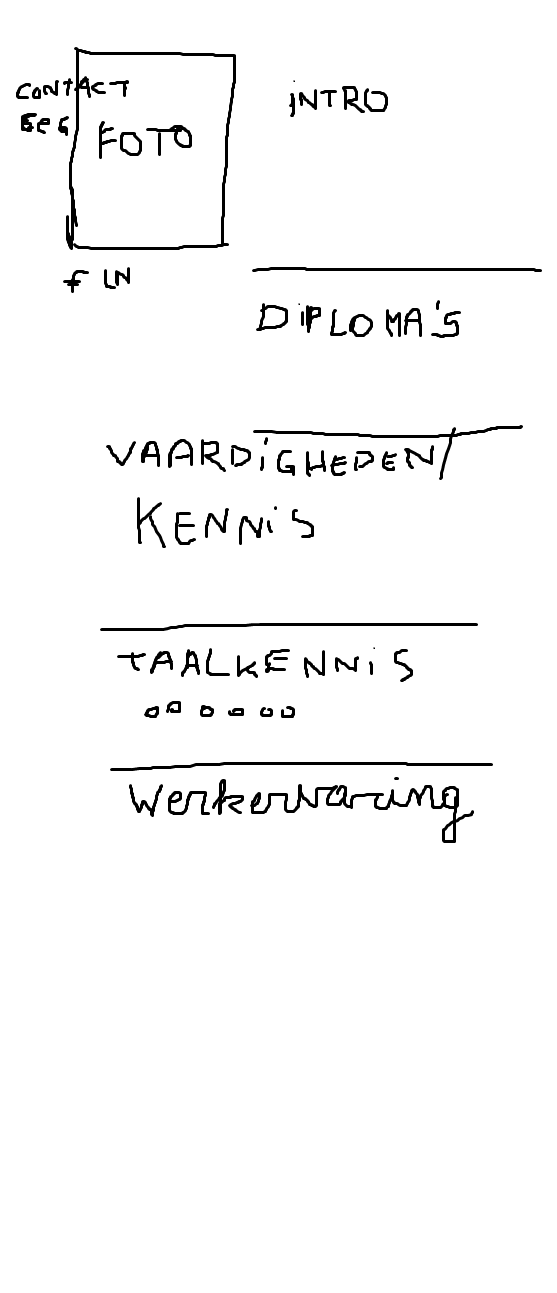 CONTACT
GEG
FOTO
iNTRO
f LN
DiPLOMA'S
VAARDiGHEDEN/
KENNiS
TAALKENNiS
Werkervaring